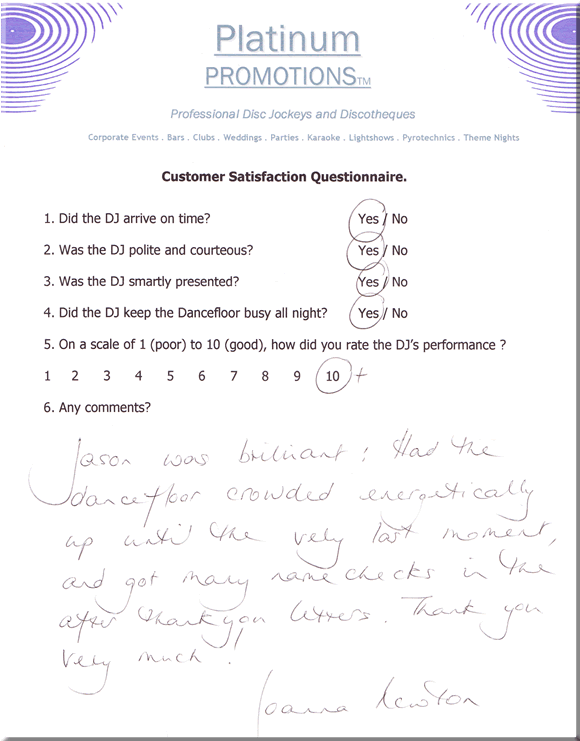 Platinum
PROMOTIONS™
Professional Disc Jockeys and Discotheques
Corporate Events . Bars . Clubs . Weddings . Parties . Karaoke . Lightshows . Pyrotechnics . Theme Nights
Customer Satisfaction Questionnaire.
1. Did the DJ arrive on time? Yes / No
2. Was the DJ polite and courteous? Yes / No
3. Was the DJ smartly presented? Yes / No
4. Did the DJ keep the Dancefloor busy all night? Yes / No
5. On a scale of 1 (poor) to 10 (good), how did you rate the DJ's performance ?
1 2 3 4 5 6 7 8 9 10 +
6. Any comments?
Jason was brilliant! Had the
dancefloor crowded energetically
up until the very last moment,
and got many name checks in the
after thank you letters. Thank you
very much!
Joanna Newton